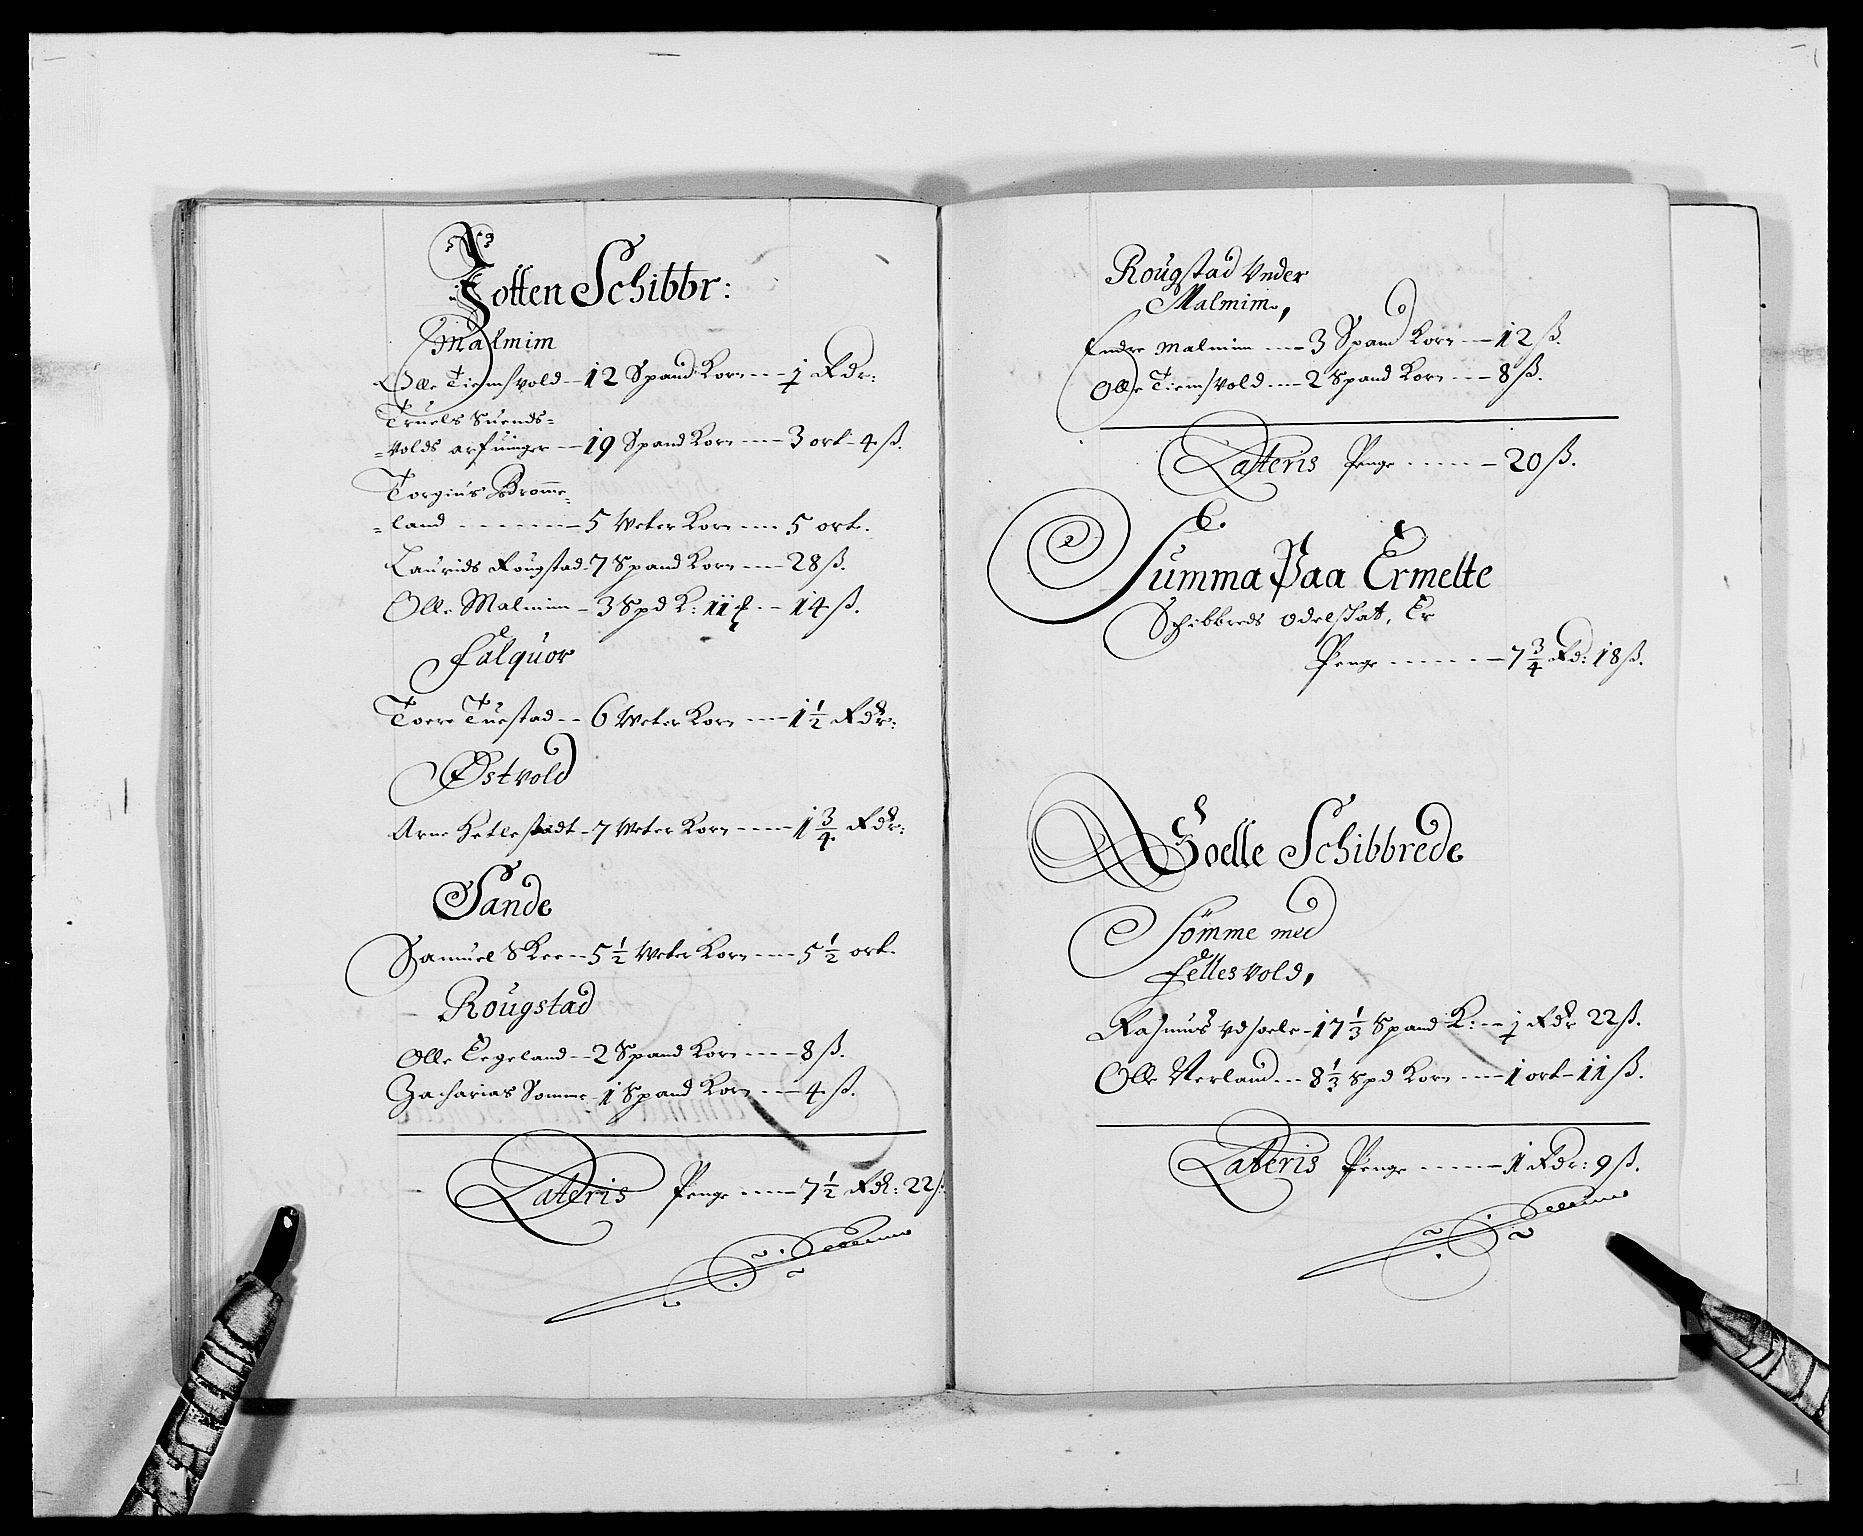 Jotten Schibbr:
Malmim
Olle Tiemsvold – 12 Spand Korn --- 1 Rdr:
Truels Suends=
=volds arfuinger --- 19 Spand Korn --- 3 ort – 4 ß.
Torgius Bromme=
=land ------- 5 Veter Korn --- 5 ort.
Laurids Rougstad – 7 Spand Korn --- 28 ß.
Olle Malmim – 3 Spd K: 11 -- 14 ß.
Falquor
Toere Tuestad -- 6 Veter Korn --- 1 1/2 Rdr:
Østvold
Arne Ketlestadt – 7 Veter Korn --- 1 3/4 Rdr:
Sande
Samuel Skee -- 5 1/2 Veter Korn --- 5 1/2 ort.
Rougstad
Olle Tegeland -- 2 Spand Korn --- 8 ß.
Zacharias Somme – 1 Spand Korn --- 4 ß.
Lateris Penge --- 7 1/2 Rdr: 22 ß
Rougstad Vnder
Malmim,
Endre Malmim --- 3 Spand Korn -- 12 ß.
Olle Tiemsvold --- 2 Spand Korn --- 8 ß.
Lateris Penge ----- 20 ß.
Summa Paa Ermelte
Schibbreds Odelskat, Er
Penge ------ 7 3/4 Rd: 18 ß.
Goelle Schibbrede
Sömme med
Fellesvold,
Rasmus – 17 1/3 Spand K: -- 1 Rdr 22 ß.
Olle Verland -- 8 1/3 Spd Korn --- 1 ort – 11 ß.
Lateris Penge ----- 1 Rdr: 9 ß.